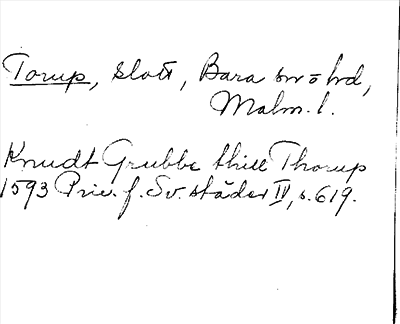 Torup, slott, Bara sn o hd,
Malm. l.
Knudt Grubbe thill Thorup
1593 Priv. f. Sv. städer IV, s. 619.